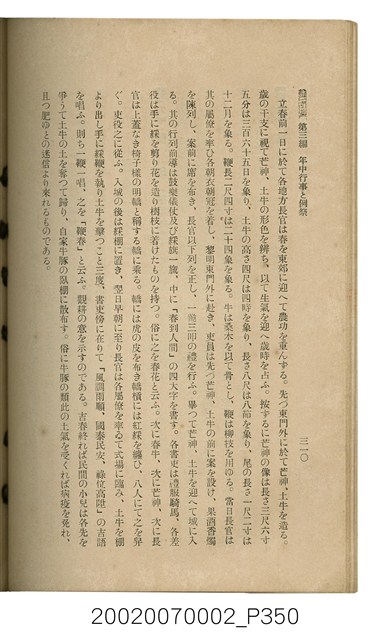 第三編　年中行事と例祭
三一〇
立春前一日に於て各地方長官は春を東郊に迎へて農功を重んずる。先づ東門外に於て芒神、土牛を造る。
歳の干支に視て芒神、土牛の形色を辨ち、以て生氣を迎へ歳時を占ふ。按ずるに芒神の像は長さ三尺六寸
五分は三百六十五日を象り、土牛の高さ四尺は四時を象り、長さ八尺は八節を象り、尾の長さ一尺二寸は
十二月を象る。鞭長二尺四寸は二十四象を象る。牛は桑木を以て骨とし、鞭は柳枝を用ゆる。當日長官は
其の屬僚を率ひ各朝衣朝冠を着し、黎明東門外に赴き、吏員は先づ芒神、土牛の前に案を設け、果酒香燭
を陳列し、案前に席を布き、長官以下列を正し、一跪三叩の禮を行ふ。畢つて芒神、土牛を迎へて城に入
る。其の行列前導は鼓樂儀仗及び綵旗一旒、中に「春到人間」の四大字を書す。各書吏は禮服騎馬、各差
役は手に綵を剪り花を造り樹枝に着けたものを持つ。俗に之を春花と云ふ。次に春牛、次に芒神、次に長
官は上蓋なき椅子樣の明轎と稱する轎に乘る。轎には虎の皮を布き轎槓には紅綵を纏ひ、八人にて之を舁
ぐ。吏役之に從ふ。入城の後は綵棚に置き、翌日早朝に至り長官は各屬僚を率ゐて式場に臨み、土牛を棚
より出し手に綵鞭を執り、土牛を擊つこと三度、書吏傍に在りて「風調雨順、國泰民安、祿位高陞」の吉語
を唱ふ。則ち一鞭一唱、之を「鞭春」と云ふ。觀耕の意を示すのである。吉春終れば民間の小兒は各先を
爭うて土牛の土を奪つて歸り、自家牛豚の臥棚に散布す。俗に牛豚の類此の土氣を受くれば病疫を免れ、
且つ肥ゆとの迷信より來れるものである。
20020070002_P350